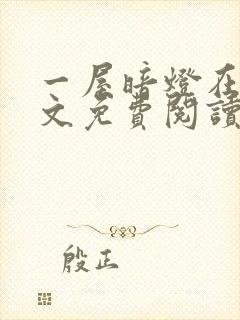 一屋暗燈在
文免費閱讀
殷正